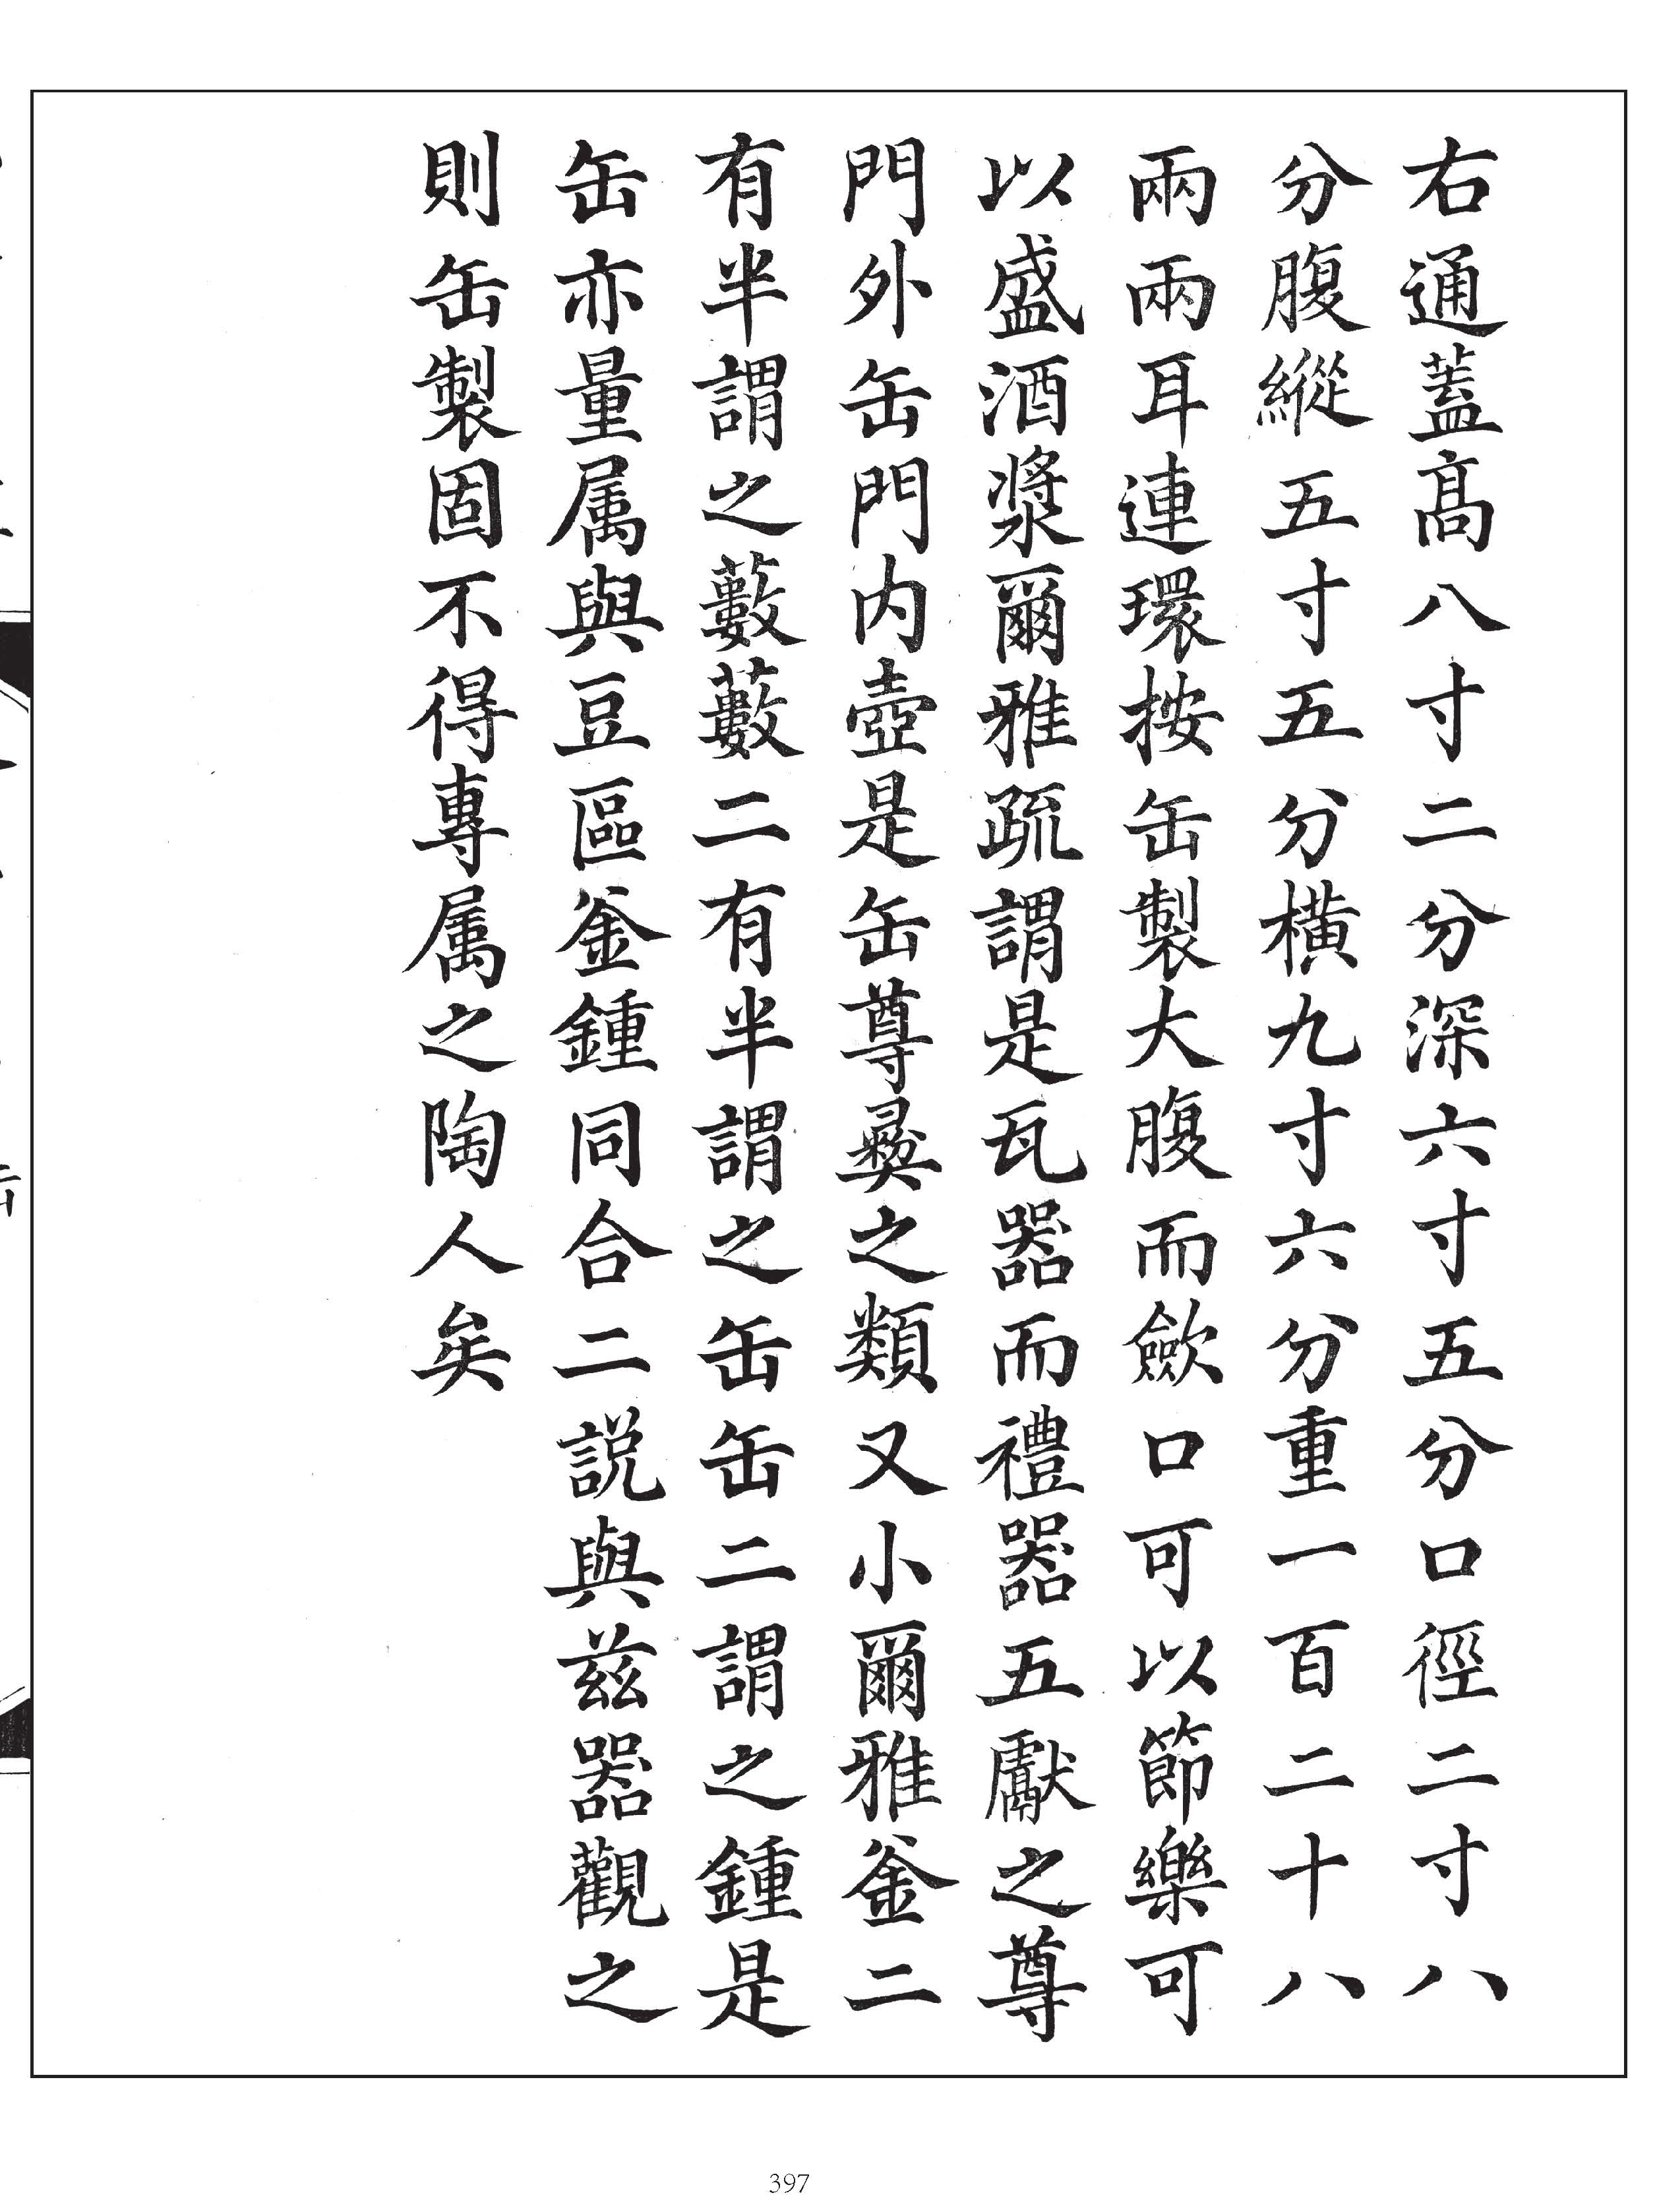 右通蓋高八寸二分深六寸五分口徑二寸八
分腹縱五寸五分橫九寸六分重一百二十八
兩兩耳連環按缶製大腹而歛口可以節樂可
以盛酒漿爾雅疏謂是瓦器而禮器五獻之尊
門外缶門内壺是缶尊彝之類又小爾雅釜二
有半謂之藪藪二有半謂之缶缶二謂之鍾是
缶亦量属與豆區釜鍾同合二說與兹器觀之
則缶製固不得專属之陶人矣
397